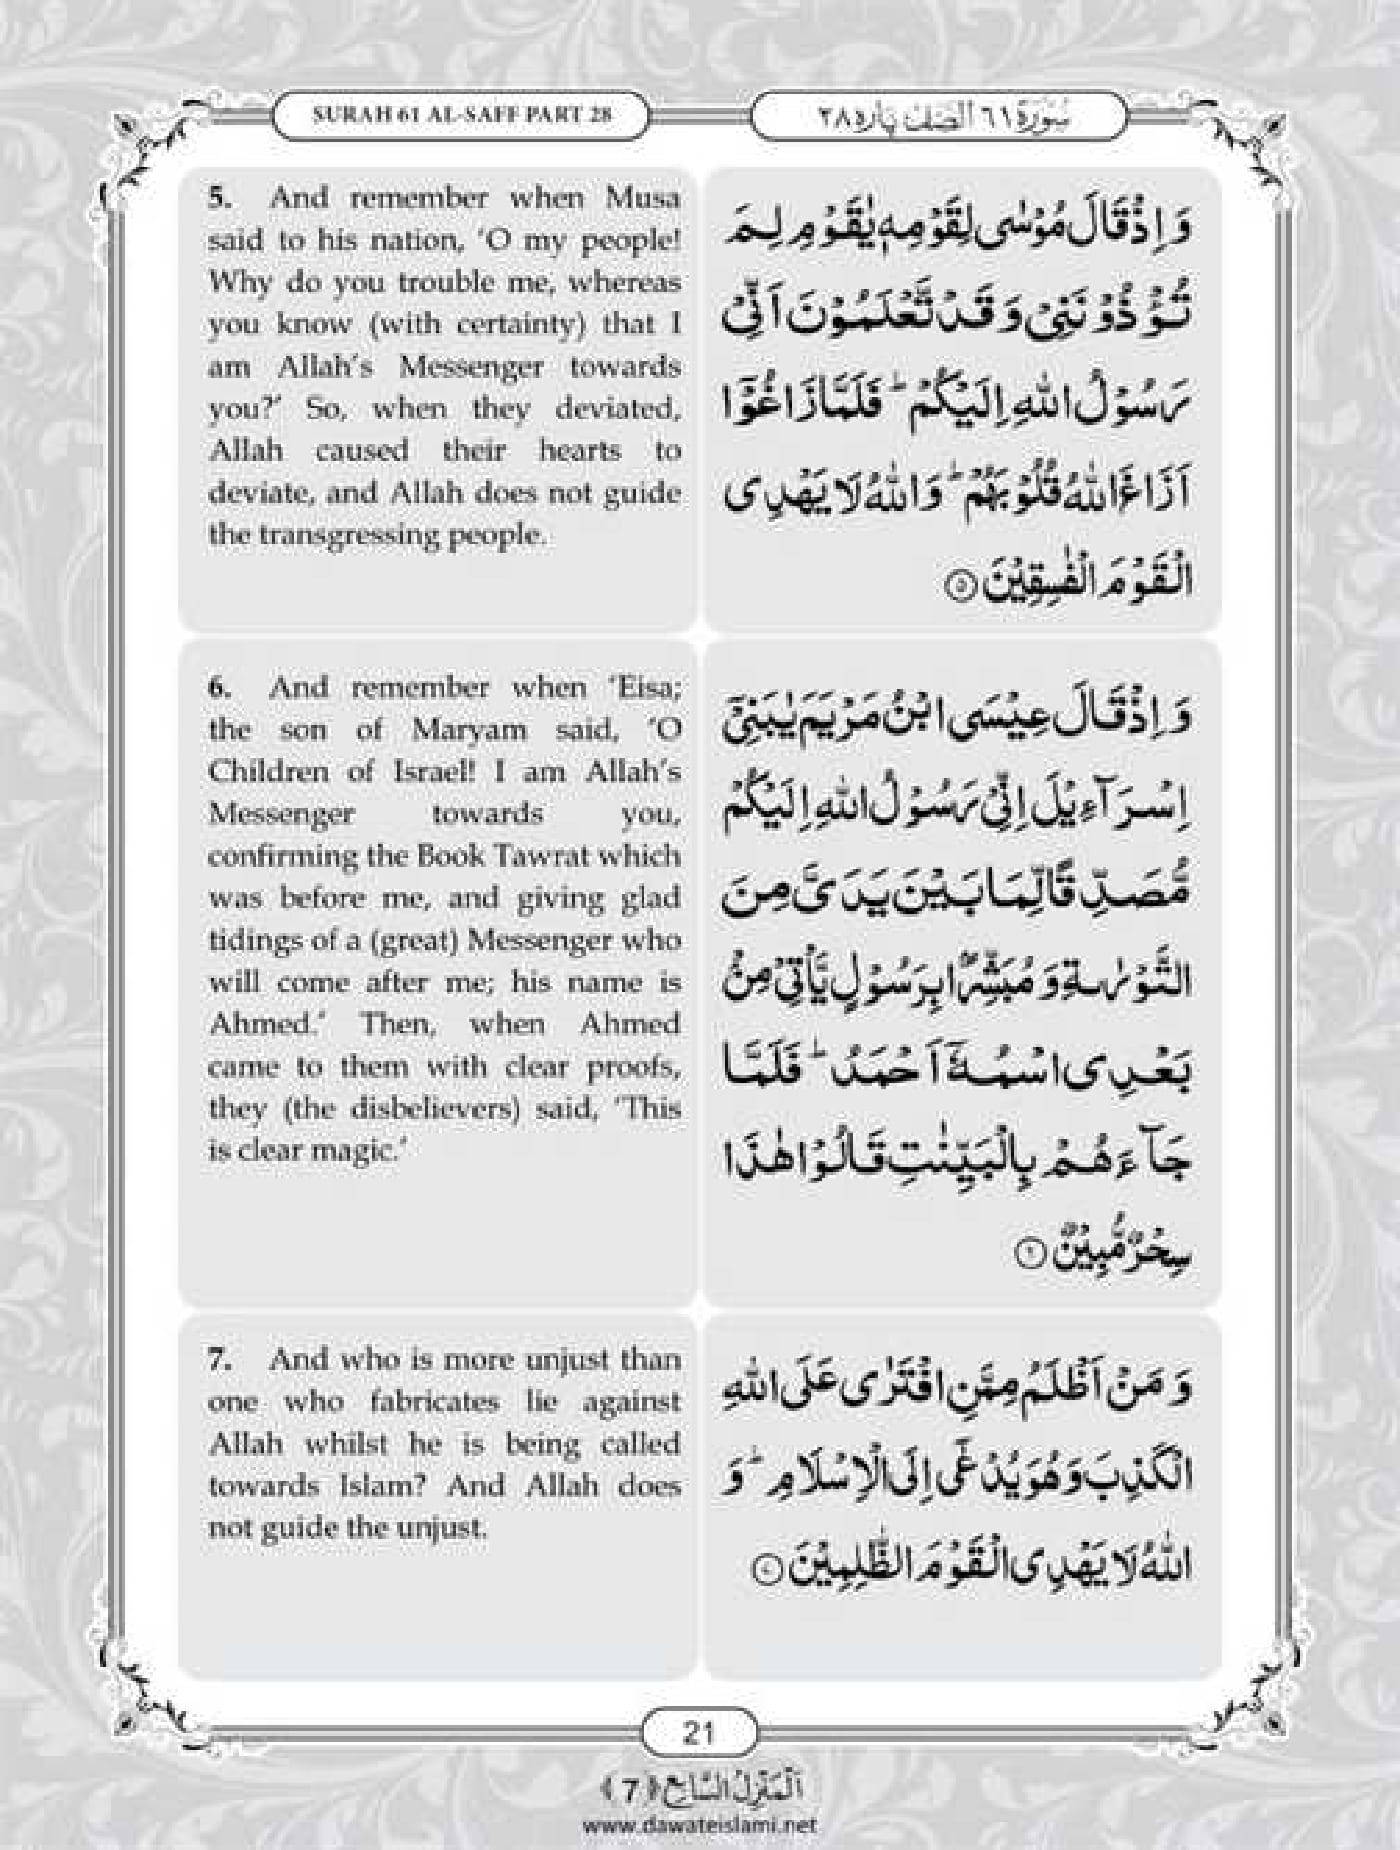 SURAH 61 AL-SAFF PART 28
سُوْرَة ٦١ اَلصَّف پاره ٢٨
5. And remember when Musa
said to his nation, ‘O my people!
Why do you trouble me, whereas
you know (with certainty) that I
am Allah’s Messenger towards
you?’ So, when they deviated,
Allah caused their hearts to
deviate, and Allah does not guide
the transgressing people.
وَ اِذْ قَالَ مُوْسٰى لِقَوْمِهٖ یٰقَوْمِ لِمَ
تُؤْذُوْنَنِیْ وَ قَدْ تَّعْلَمُوْنَ اَنِّیْ
رَسُوْلُ اللّٰهِ اِلَیْكُمْؕ فَلَمَّا زَاغُوْۤا
اَزَاغَ اللّٰهُ قُلُوْبَهُمْؕ وَ اللّٰهُ لَا یَهْدِی
الْقَوْمَ الْفٰسِقِیْنَ ۝۵
6. And remember when ‘Eisa;
the son of Maryam said, ‘O
Children of Israel! I am Allah’s
Messenger towards you,
confirming the Book Tawrat which
was before me, and giving glad
tidings of a (great) Messenger who
will come after me; his name is
Ahmed.’ Then, when Ahmed
came to them with clear proofs,
they (the disbelievers) said, ‘This
is clear magic.’
وَ اِذْ قَالَ عِیْسَى ابْنُ مَرْیَمَ یٰبَنِیْۤ
اِسْرَآءِیْلَ اِنِّیْ رَسُوْلُ اللّٰهِ اِلَیْكُمْ
مُّصَدِّقًا لِّمَا بَیْنَ یَدَیَّ مِنَ
التَّوْرٰىةِ وَ مُبَشِّرًۢا بِرَسُوْلٍ یَّاْتِیْ مِنْۢ
بَعْدِی اسْمُهٗۤ اَحْمَدُؕ فَلَمَّا
جَآءَهُمْ بِالْبَیِّنٰتِ قَالُوْا هٰذَا
سِحْرٌ مُّبِیْنٌ ۝۶
7. And who is more unjust than
one who fabricates lie against
Allah whilst he is being called
towards Islam? And Allah does
not guide the unjust.
وَ مَنْ اَظْلَمُ مِمَّنِ افْتَرٰى عَلَى اللّٰهِ
الْكَذِبَ وَ هُوَ یُدْعٰۤى اِلَى الْاِسْلَامِؕ وَ
اللّٰهُ لَا یَهْدِی الْقَوْمَ الظّٰلِمِیْنَ ۝۷
21
اَلْمَنْزِلُ السَّابِعُ ﴿7﴾
www.dawateislami.net